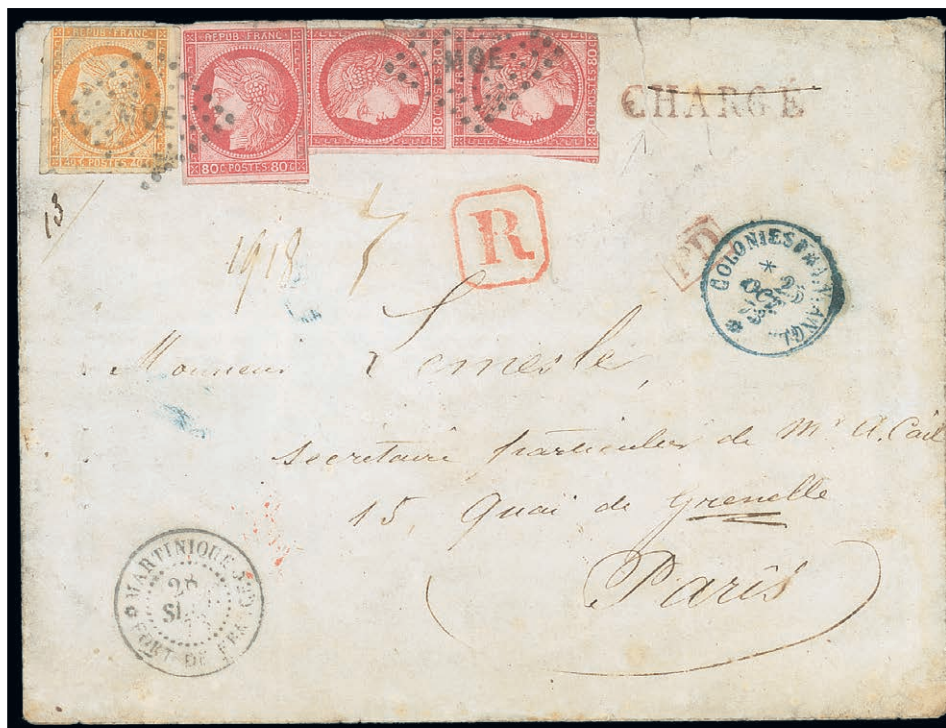 REPUB FRANC
40 C. POSTES 40 C
REPUB FRANC
80C POSTES 80C
80C POSTES 80C
80C POSTES 80C
MQE
MQE
CHARGÉ
13
1918
R
PD
COLONIES FR. V. ANGL.
25
OCT
73
Monsieur Lemesle,
secrétaire particulier de Mr A. Cail
15, Quai de Grenelle
Paris
MARTINIQUE
28
FORT DE FRE